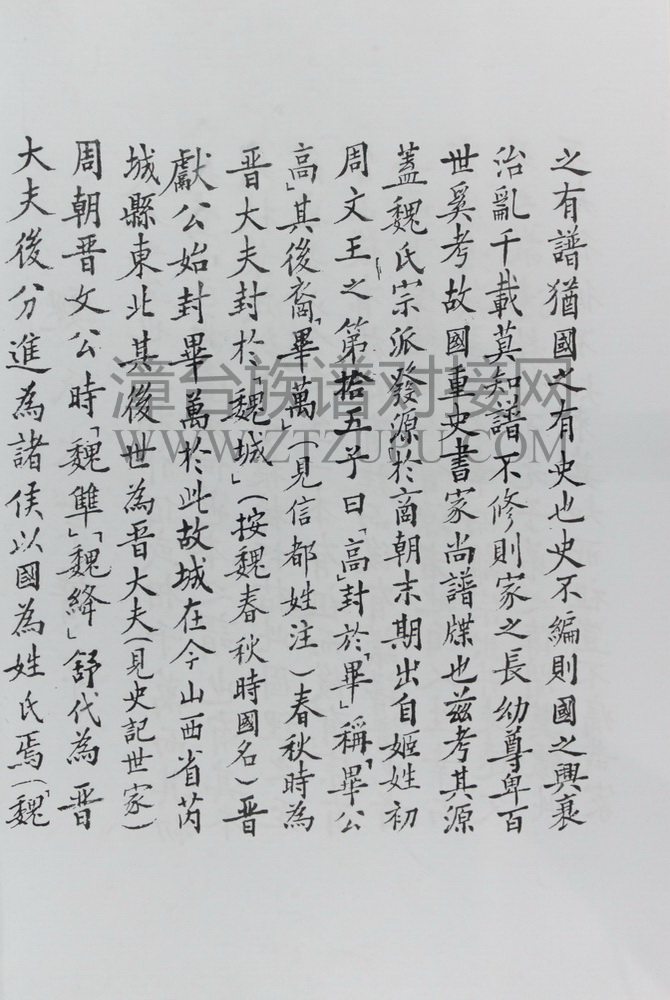 之有譜猶國之有史也史不編則國之興衰
治亂千載莫知譜不修則家之長幼尊卑百
世奚考故國重史書家尚譜牒也茲考其源
蓋魏氏宗派發源於商朝末期出自姬姓初
周文王之第拾五子曰「高」封於「畢」稱「畢公
高」其後裔「畢萬」（見信都姓注）春秋時為
晉大夫封於「魏城」（按魏春秋時國名）晉
獻公始封畢萬於此故城在今山西省芮
城縣東北其後世為晉大夫（見史記世家）
周朝晉文公時「魏犨」「魏絳」舒代為晉
大夫後分進為諸侯以國為姓氏焉（「魏
漳台族谱对接网
WWW.ZTZUPU.COM